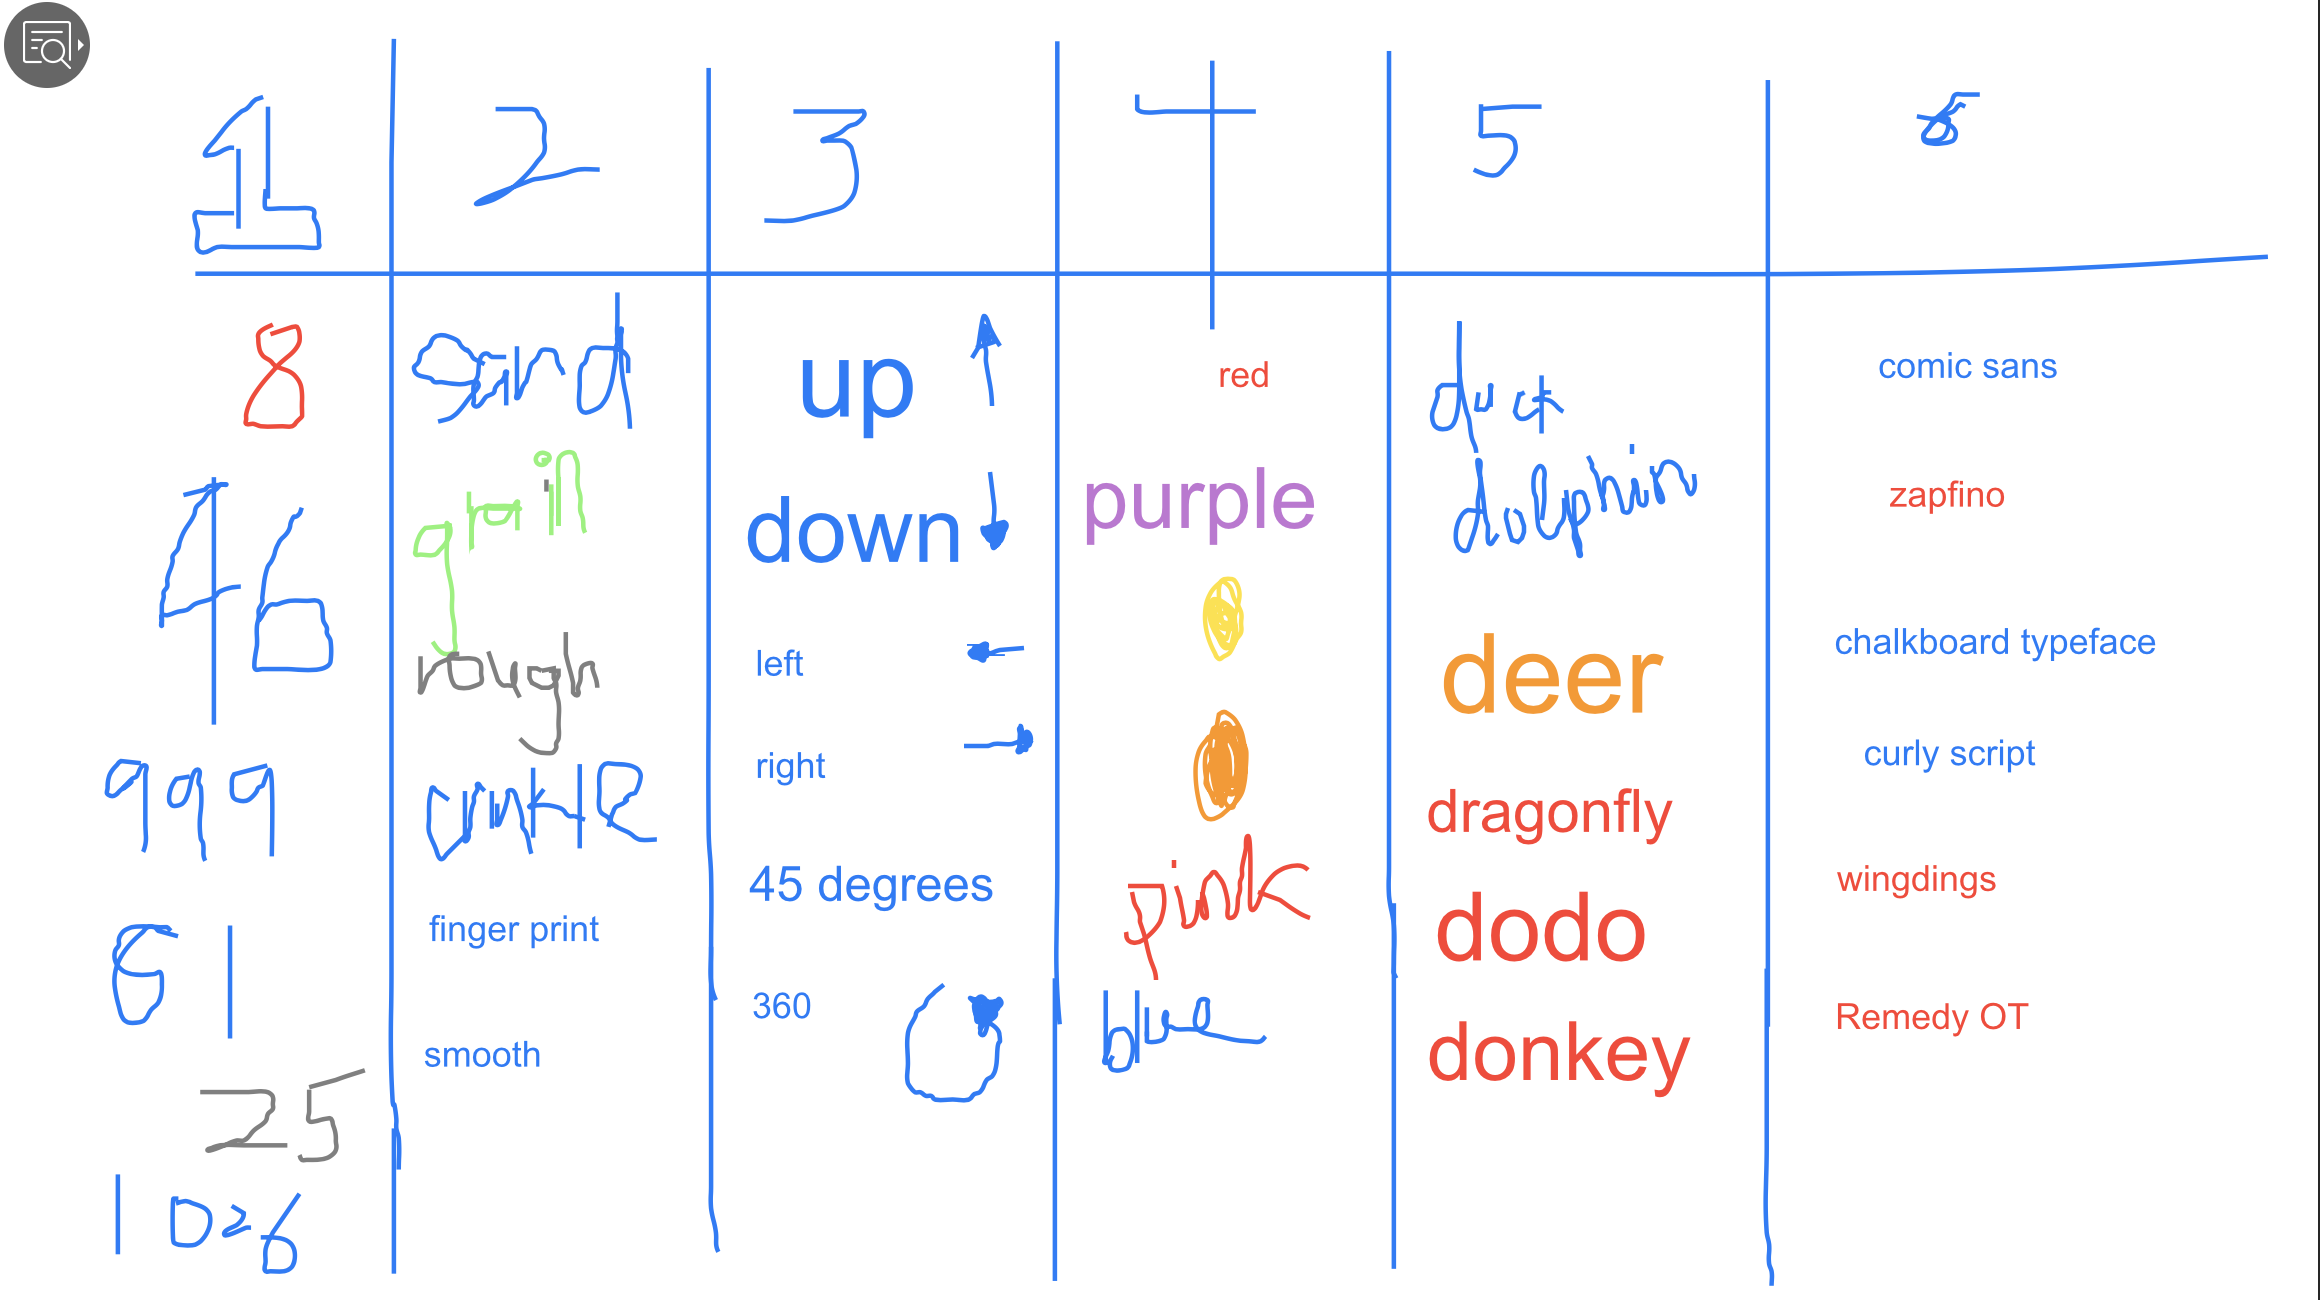 1 2 3 4 5 6
8 sand up red duck comic sans
46 grain down purple dolphin zapfino
999 rough left deer chalkboard typeface
61 crinkle right dragonfly curly script
25 finger print 45 degrees pink dodo wingdings
1026 smooth 360 blue donkey Remedy OT